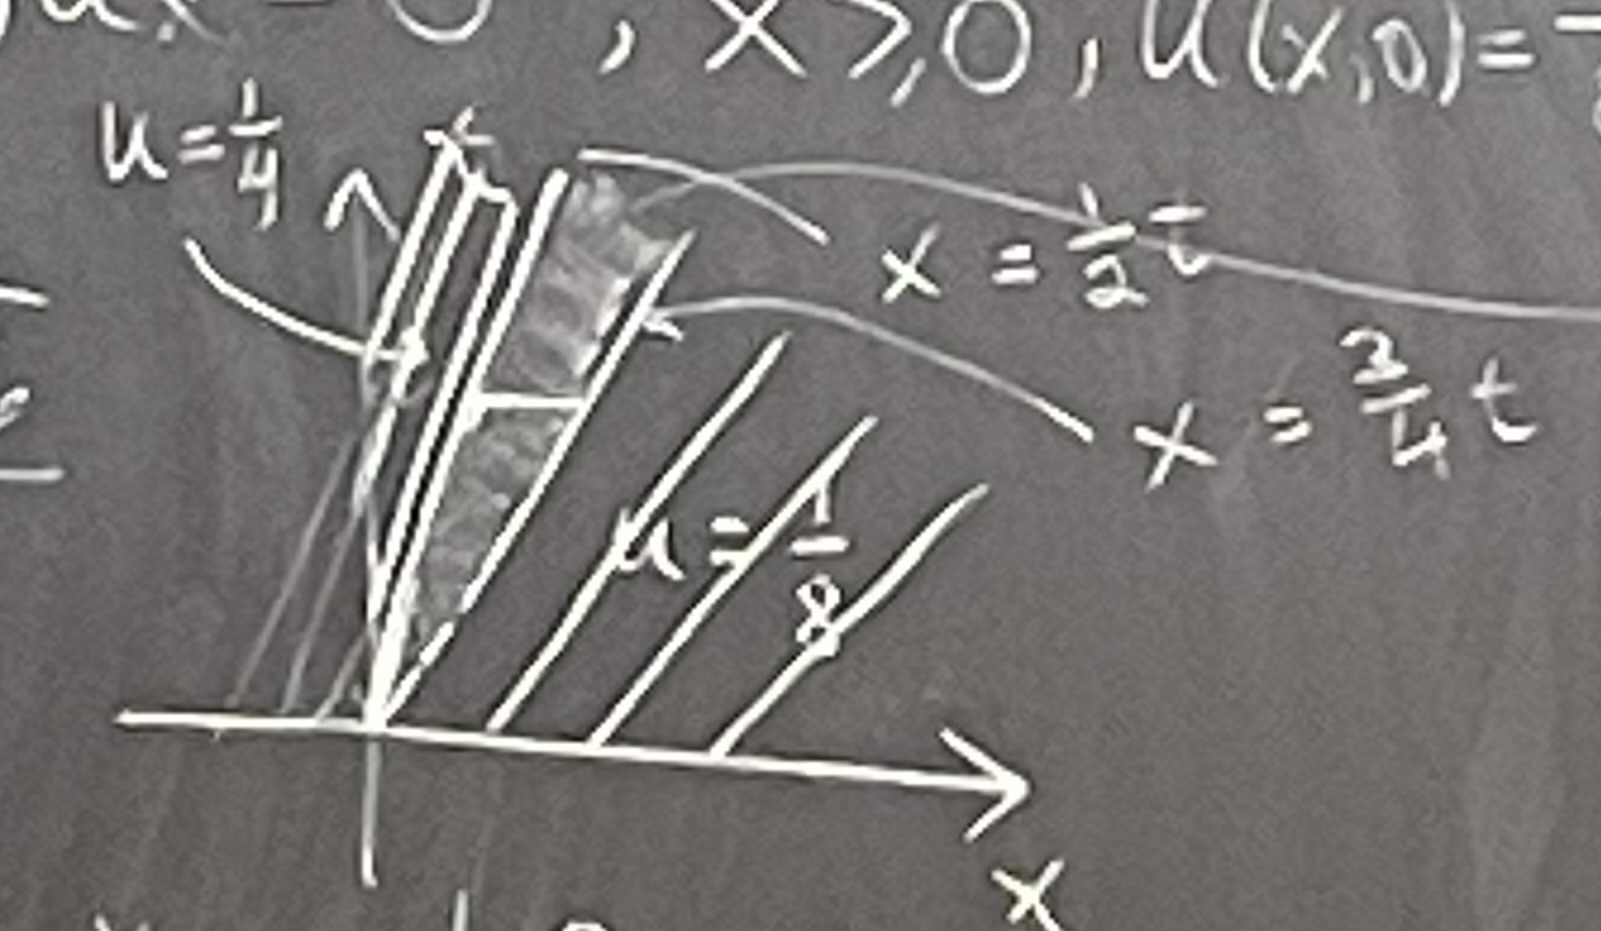 = 0 , x ≥ 0 , u(x,0) =
u = 1/4
x = 1/2 t
x = 3/4 t
u = 1/8
x